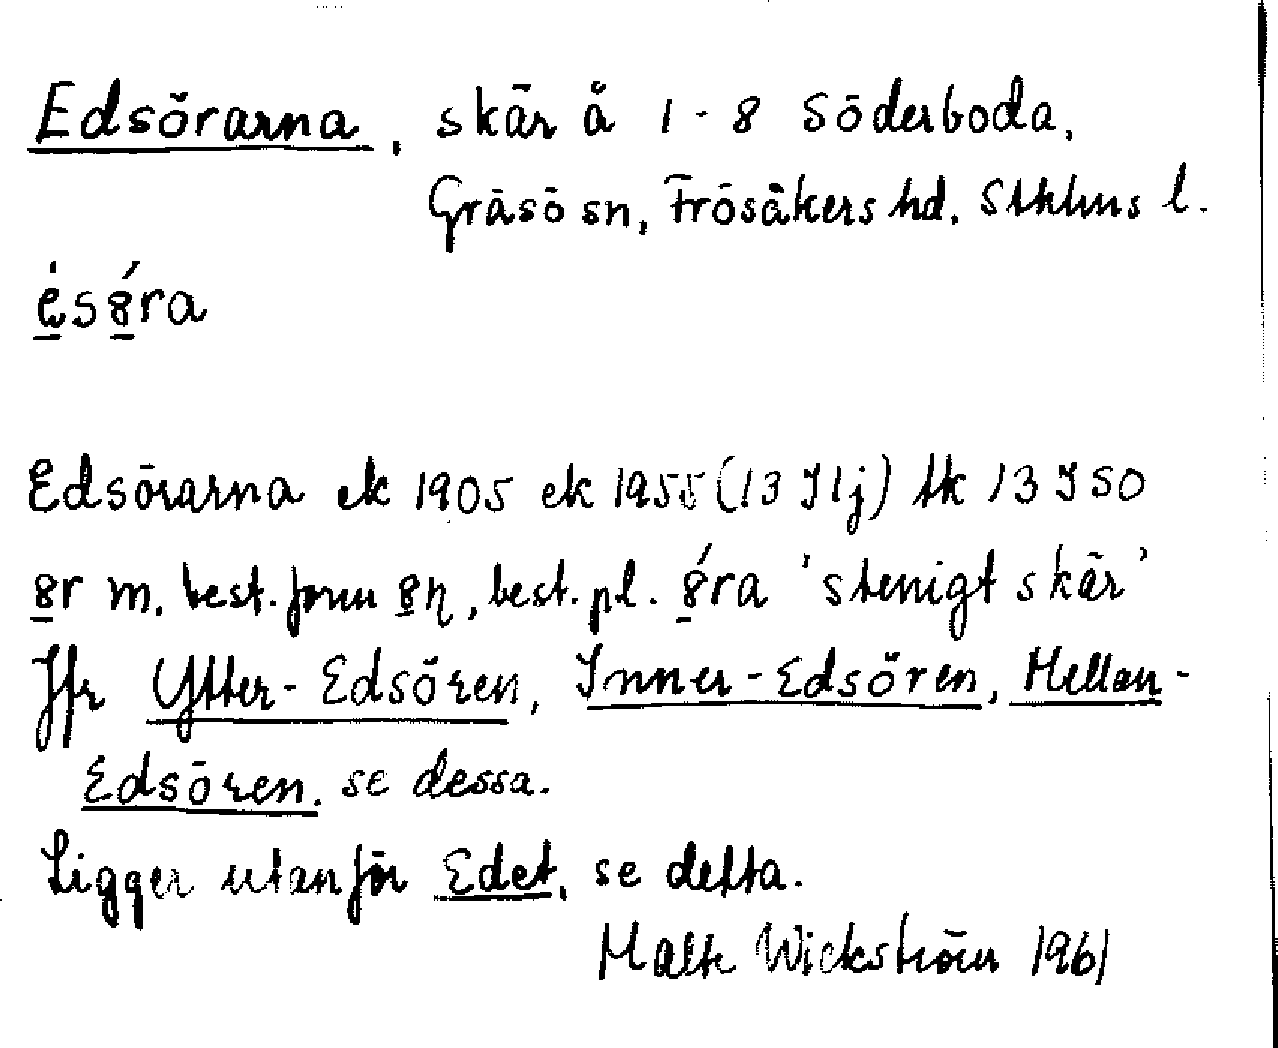 Edsörarna, skär å 1-8 Söderboda,
Gräsö sn, Frösåkers hd. Sthlms l.
ė̱s8̱́ra
Edsörarna ek 1905 ek 1955 (13 I 1j) tk 13 I SO
8̱r m. best. form 8̱ɳ, best. pl. 8̱́ra 'stenigt skär'
Jfr Ytter-Edsören, Inner-Edsören, Mellan-
Edsören. se dessa.
Ligger utanför Edet, se detta.
Malte Wickström 1961